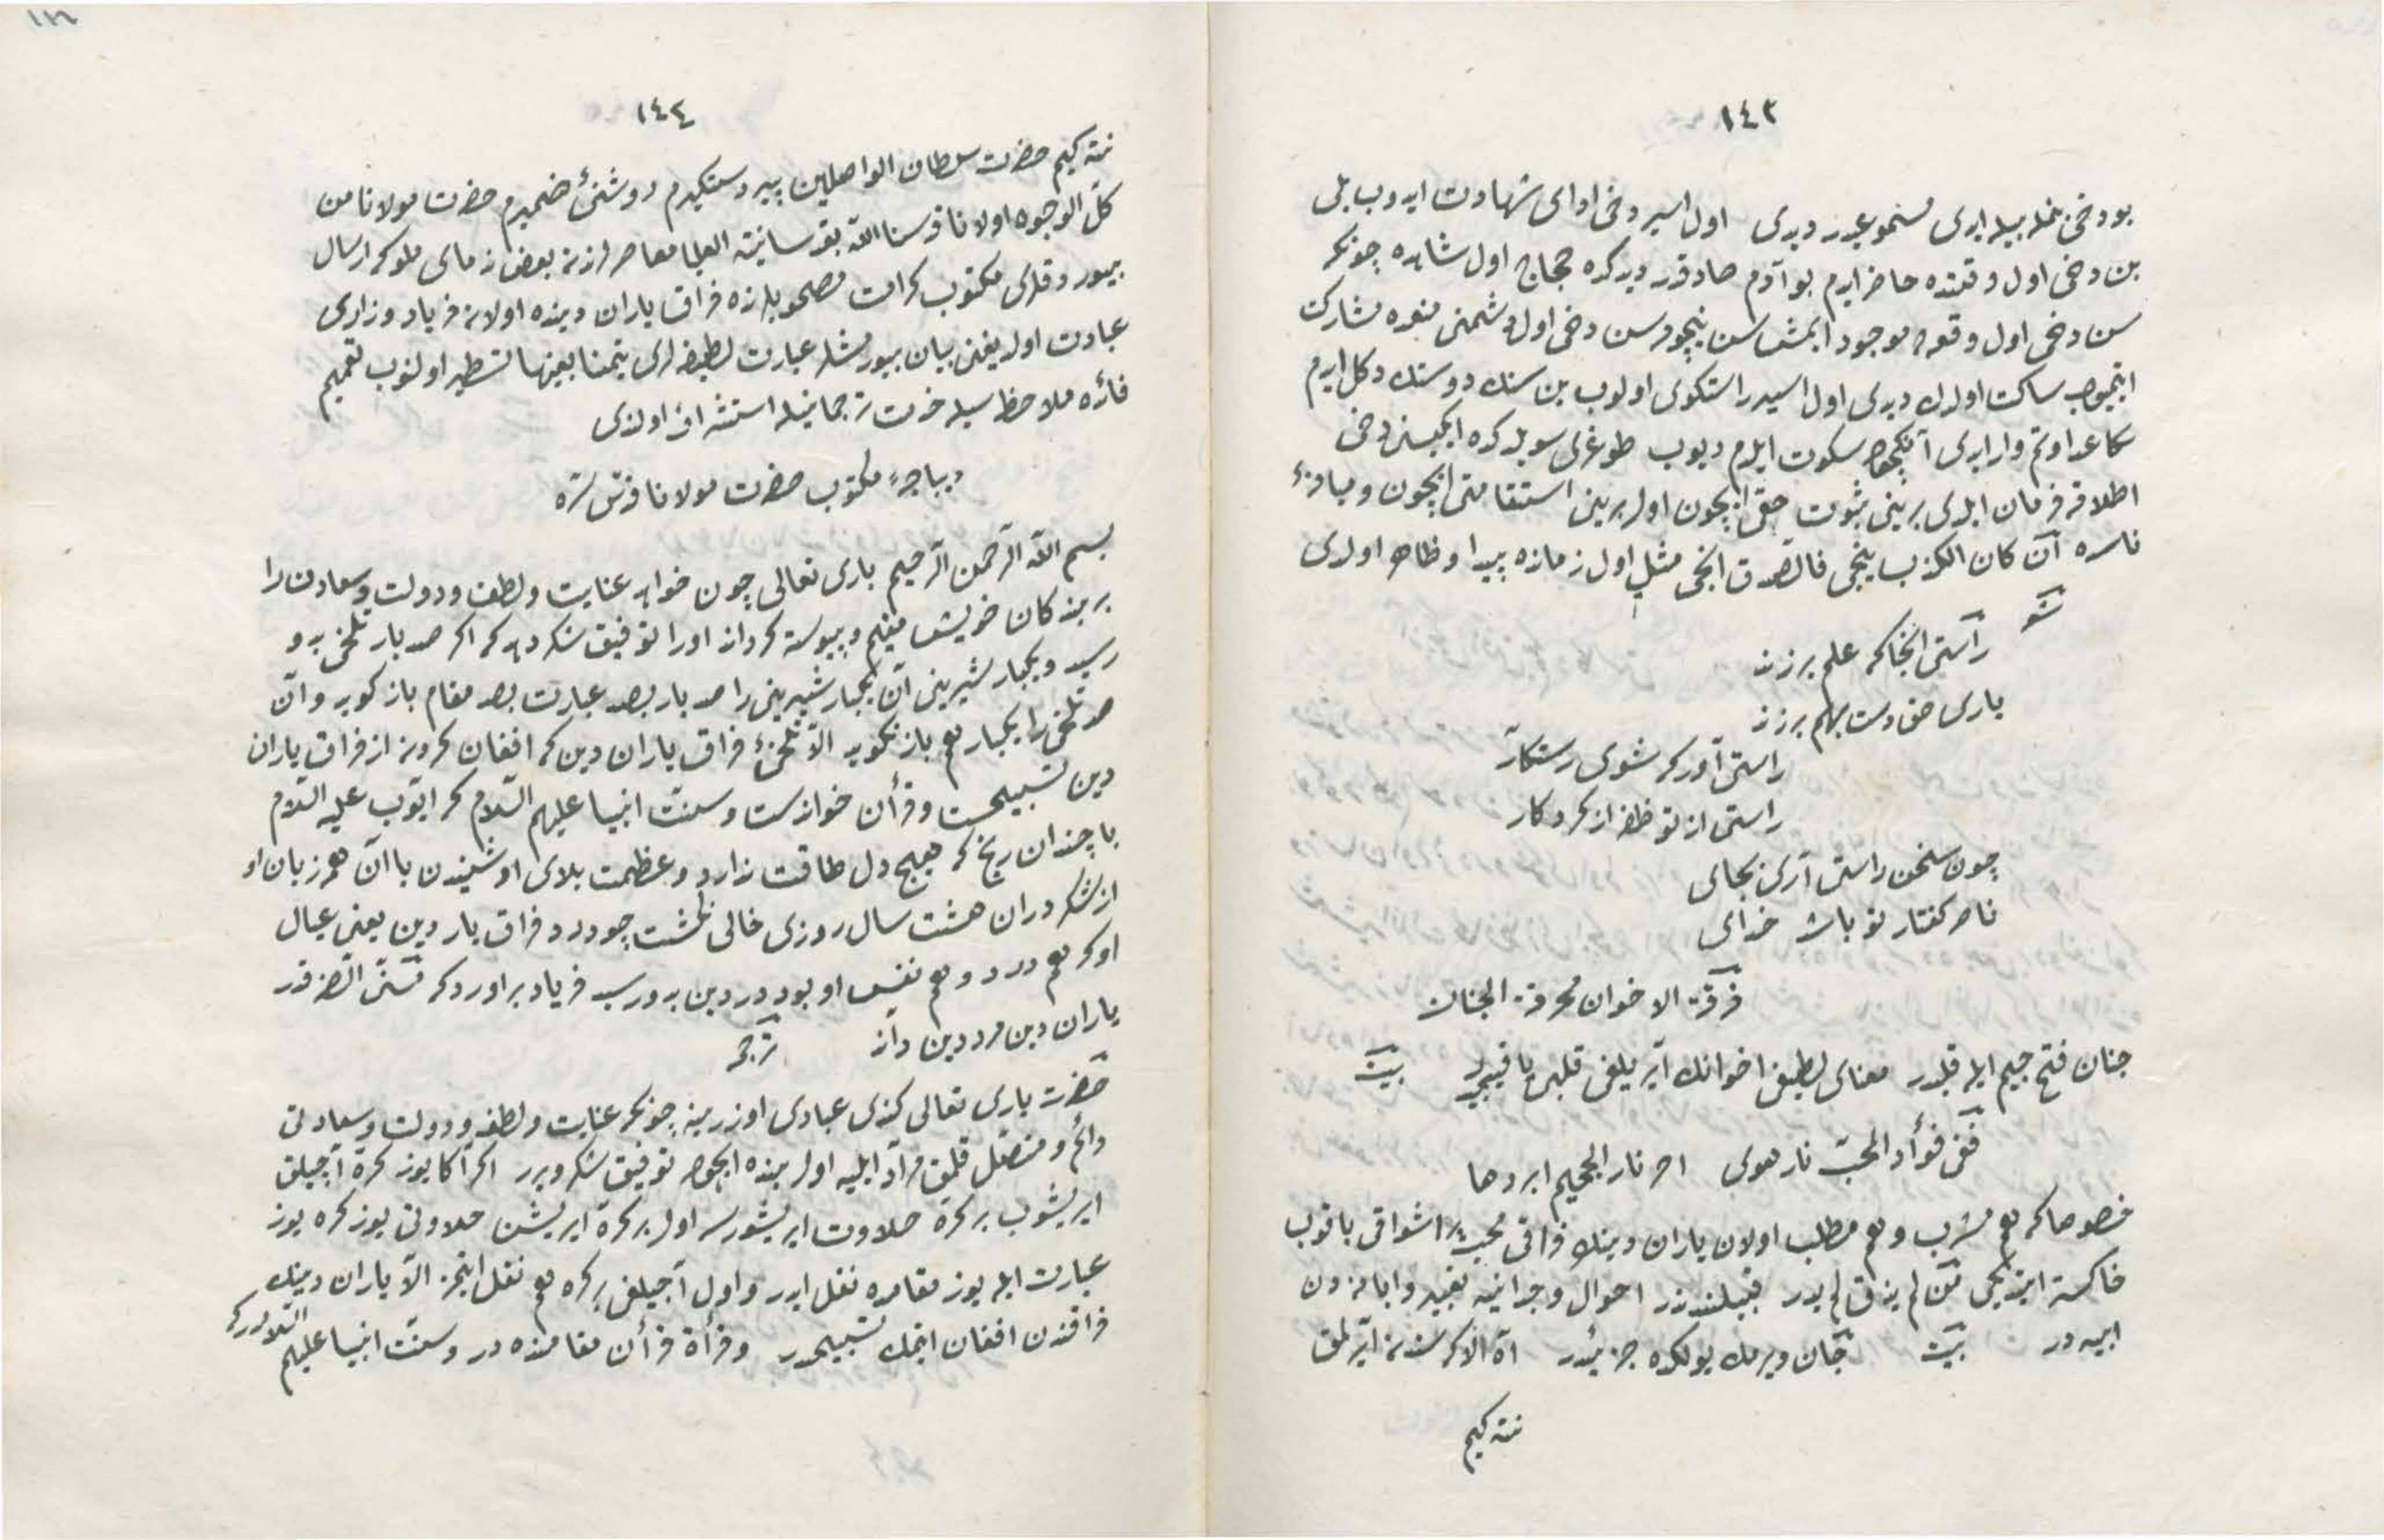 ١٤٣
بو دخی اول اسیر دخی ادای شهادت ایدوب بلی
بن دخی اول وقتده حاضر ایدم بو آدم صادقدر دیدکده حجاج اول شاهده چونکه
سن دخی اول وقعه موجود ایمشسن نیچون سن دخی اول دشمنی منعده مشارکت
ایتمیوب ساکت اولدك دیدی اول اسیر راستکوی اولوب بن سنك دوستك دکل ایدم
سکا عداوتم وار ایدی آنکچون سکوت ایلدم دیوب طوغری سویلدکده ایکیسنی دخی
اطلاقه فرمان ایلدی برینی ثبوت حقی ایچون اول برینی استقامتی ایچون و میانۀ
ناسده ان کان الکذب ینجی فالصدق انجی مثلی اول زمانده پیدا و ظاهر اولدی
راستی آنجا که علم بر زند
یاری حق دست بهم بر زند
راستی آور که شوی رستکار
راستی از تو ظفر از کردکار
چون سخن راستی آری بجای
ناصر کفتار تو باشد خدای
فرقة الاخوان محرقة الجنان
جنان فتح جیم ایله قلبدر معنای لطیفی اخوانك آیریلغی قلبی یاقیجیدر بیت
ففی فؤاد المحب نار هوی احر نار الجحیم ابردها
خصوصا که هم مشرب و هم مطلب اولان یاران دینك فراقی محب پر اشواقی یاقوب
خاکستر ایدیجی من لم یذق لم یدر قبیلندندر احوال وجدانیه تعبیر و ابانه دن
ابیه در بیت جان ویرمك یولکده جزئیدر آه الا که سندن آیرلمق
نته کیم
١٤٤
نته کیم حضرت سلطان الواصلین پیر دستکیرم روشنیٔ ضمیرم حضرت مولانا من
کل الوجوه اولانا قدسنا الله بقدسانیته العلیا معاصرلرندن بعض زمانی ملوکه ارسال
بیوردقلری مکتوب کرامت مصحوبلرنده فراق یاران دینده اولان فریاد و زاری
عبادت اولدیغنی بیان بیورمشلر عبارت لطیفه لری تیمنا بعینها تسطیر اولنوب تعمیم
فائده ملاحظه سیله خدمت ترجمانیله استشراف اولندی
دیباجۀ مکتوب حضرت مولانا قدس سره
بسم الله الرحمن الرحیم باری تعالی چون خواهد عنایت و لطف و دولت و سعادت را
بر بندکان خویش مقیم و پیوسته کرداند اورا توفیق شکر دهد که اکر صد بار تلخی بدو
رسد و یکبار شیرینی آن یکبار شیرینی را صد بار بصد عبارت بصد مقام باز کوید و آن
صد تلخی را یکبار هم باز نکوید الا تلخیٔ فراق یاران دین که افغان کردن از فراق یاران
دین تسبیحست و قرآن خواندنست و سنت انبیا علیهم السلام که ایوب علیه السلام
با چندان رنج که هیچ دل طاقت ندارد و عظمت بلای او شنیدن با آن همه زبان او
از شکر دران هشت سال روزی خالی نکشت چو درد فراق یار دین یعنی عیال
او که هم درد و هم نفس او بود در دین بدو رسید فریاد برآورد که مسنی الضر قدر
یاران دین مرد دین داند ترجمه
حضرت باری تعالی کندی عبادی اوزرینه چونکه عنایت و لطف و دولت و سعادتی
دائم و متصل قلمق مراد ایلیه اول بنده ایچون توفیق شکر ویرر اکر آکا یوز کره آجیلق
ایریشوب بر کره حلاوت ایریشورسه اول بر کره ایریشن حلاوتی یوز کره یوز
عبارت ایله یوز مقامده نقل ایدر و اول آجیلغی بر کره هم نقل ایتمز الا یاران دینك
فراقندن افغان ایتمك تسبیحدر و قرأة قرأن مقامنده در و سنت انبیا علیهم السلامدر که